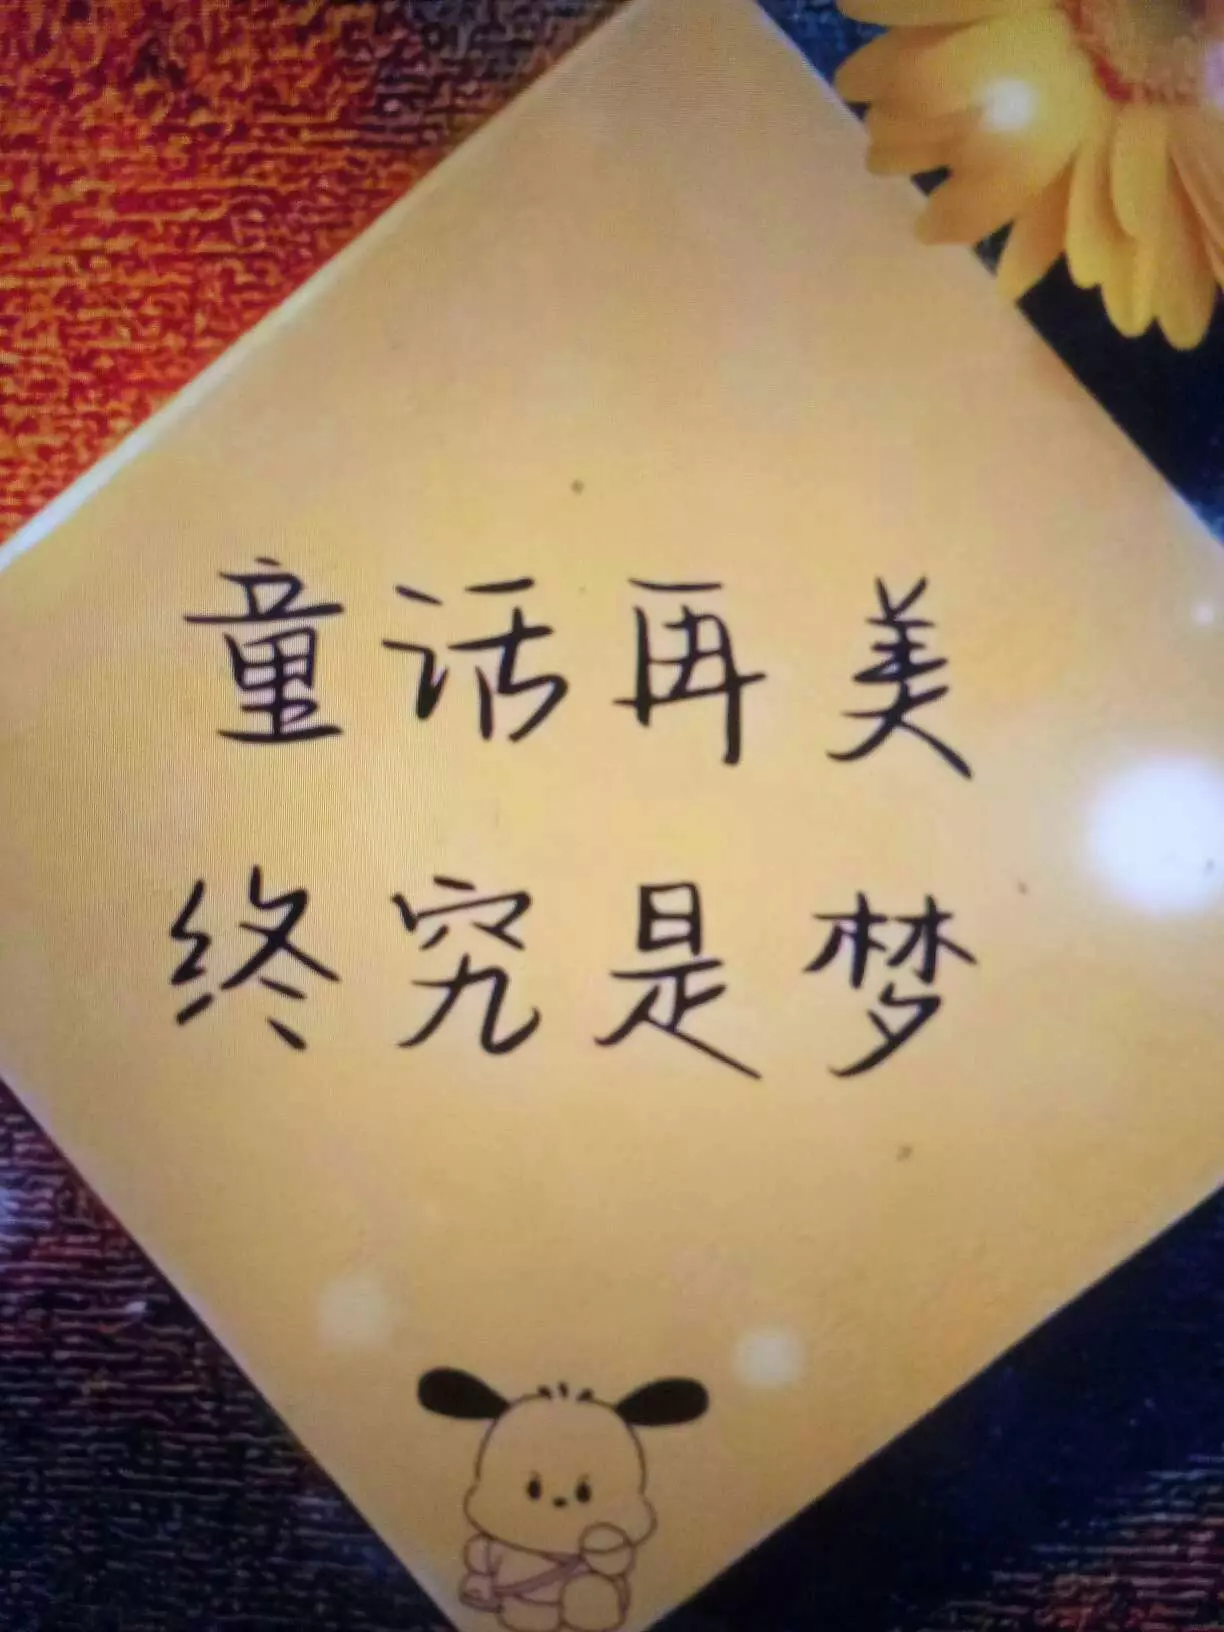 童话再美
终究是梦